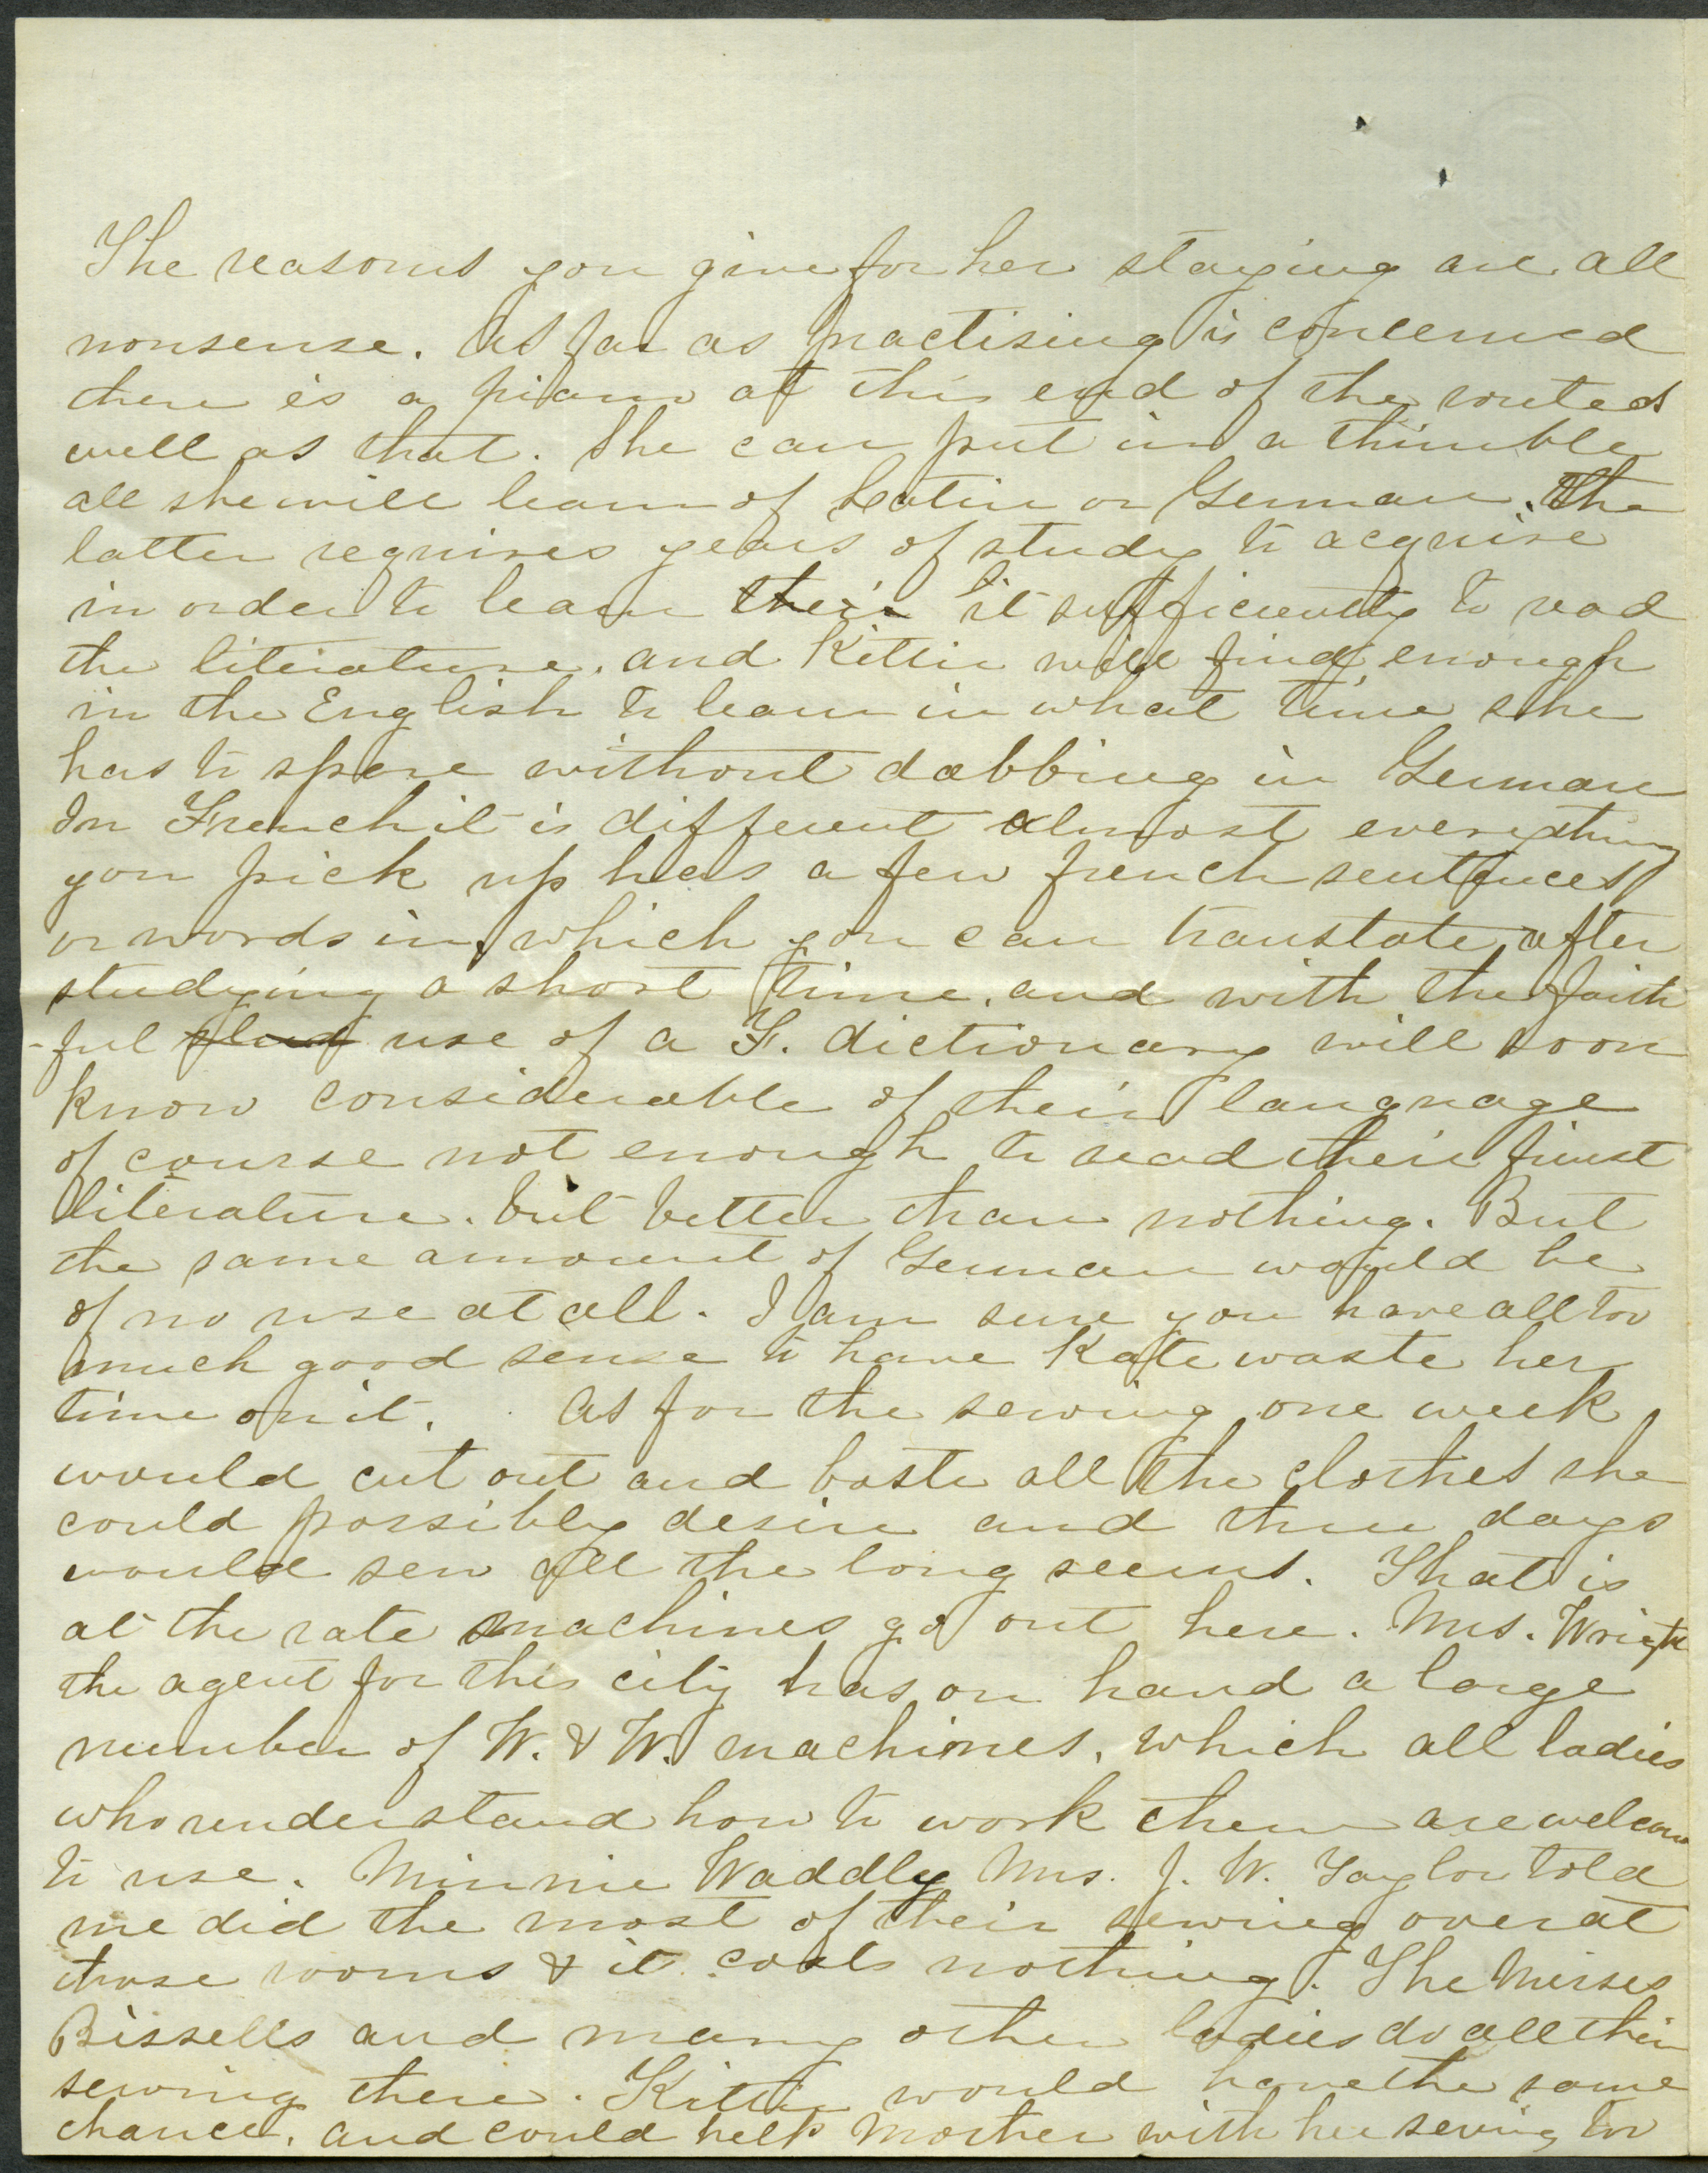 The reasons you give for her staying are all
nonsense. As far as practising is concerned
there is a piano at this end of the route as
well as that. She can put in a thimble
all she will learn of Latin or German. The
latter requires years of study to acquire
in order to learn their it sufficiently to read
the literature. and Kittie will find enough
in the English to learn in what time she
has to spare without dabbing in German
In French it is different almost everything
you pick up has a few french sentences
or words in, which you can translate after
studying a short time. and with the faith
-ful use of a F. dictionary will soon
know considerable of their language
of course not enough to read their finest
literature. but better than nothing. But
the same amount of German would be
of no use at all. I am sure you have all too
much good sense to have Kate waste her
time on it. As for the sewing one week
would cut out and baste all the clothes she
could possibly desire and three days
would sew all the long seems. That is
at the rate machines go out here. Mrs. Wright
the agent for this city has on hand a large
number of W. & W. machines, which all ladies
who understand how to work them are welcome
to use. Minnie Waddly Mrs. J. W. Taylor told
me did the most of their sewing over at
those rooms & it costs nothing. The Misses
Bissells and many other ladies do all their
sewing there. Kittie would have the same
chance. and could help Mother with her sewing too